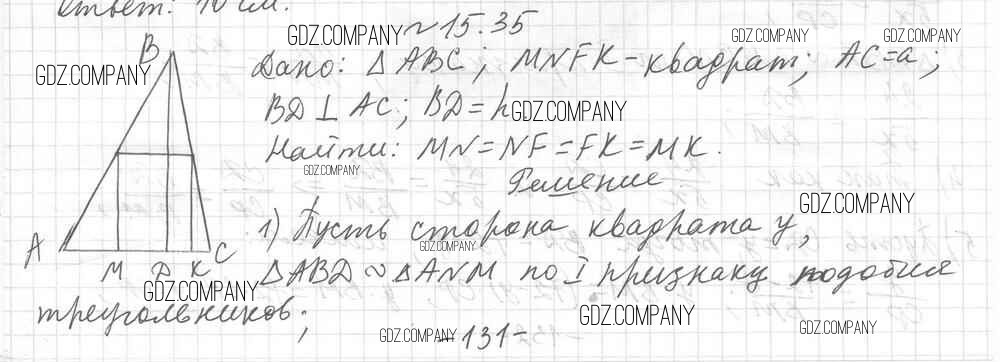 Ответ: 10 см.
~15.35
Дано: △ABC; MNFK - квадрат; AC=a;
BD⊥AC; BD=h
Найти: MN=NF=FK=MK.
Решение
1) Пусть сторона квадрата y,
△ABD ~ △ANM по I признаку подобия
треугольников;
-131-
B
A
M
D
K
C
GDZ.COMPANY
GDZ.COMPANY
GDZ.COMPANY
GDZ.COMPANY
GDZ.COMPANY
GDZ.COMPANY
GDZ.COMPANY
GDZ.COMPANY
GDZ.COMPANY
GDZ.COMPANY
GDZ.COMPANY
GDZ.COMPANY